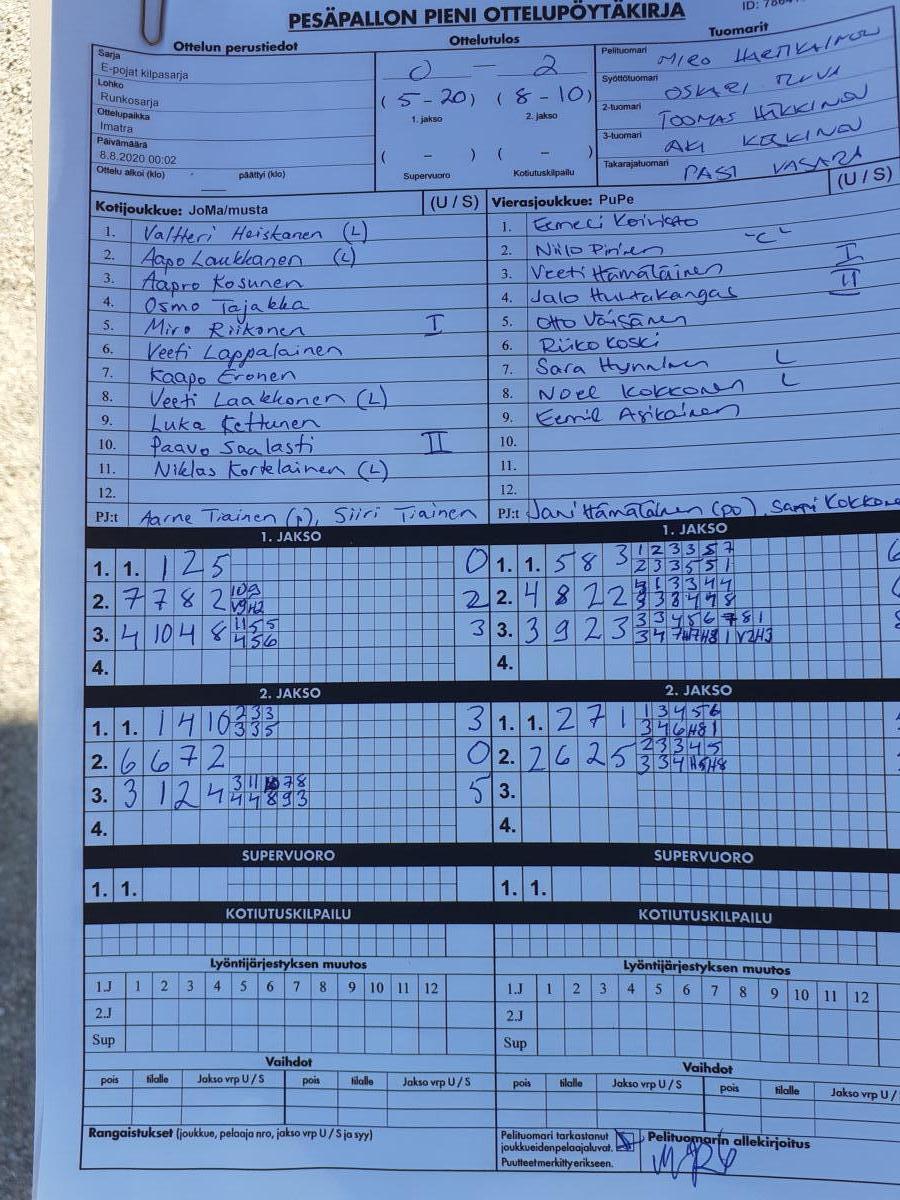 PESÄPALLON PIENI OTTELUPÖYTÄKIRJA
ID:
Ottelun perustiedot
Ottelutulos
Tuomarit
Sarja
E-pojat kilpasarja
Lohko
Runkosarja
Ottelupaikka
Imatra
Päivämäärä
8.8.2020 00:02
Ottelu alkoi (klo) päättyi (klo)
0 — 2
(5-20) (8-10)
1. jakso 2. jakso
( - ) ( - )
Supervuoro Kotiutuskilpailu
Pelituomari MIRO
Syöttötuomari OSKARI
2-tuomari TOOMAS HÄKKINEN
3-tuomari AKI
Takarajatuomari PASI VASARA
Kotijoukkue: JoMa/musta (U / S)
1. Valtteri Heiskanen (L)
2. Aapo Laukkanen (L)
3. Aapro Kosunen
4. Osmo Tajakka
5. Miro Riikonen I
6. Veeti Lappalainen
7. Kaapo Eronen
8. Veeti Laakkonen (L)
9. Luka Kettunen
10. Paavo Saalasti II
11. Niklas Kortelainen (L)
12.
PJ:t Aarne Tiainen (p), Siiri Tiainen
Vierasjoukkue: PuPe (U / S)
1. Eemeli Koivisto
2. Niilo Pirinen
3. Veeti Hämäläinen I
4. Jalo Huhtakangas II
5. Otto Väisänen
6. Riiko Koski
7. Sara Hynninen L
8. Noel Kokkonen L
9. Eemil Asikainen
10.
11.
12.
PJ:t Jani Hämäläinen (po), Sampi
1. JAKSO
1. 1. 1 2 5 0
2. 7 7 8 2 2
3. 4 10 4 8 3
4.
1. JAKSO
1. 1. 5 8 3
2. 4 8 2 2
3. 3 9 2 3
4.
2. JAKSO
1. 1. 1 4 10 3
2. 6 6 7 2 0
3. 3 1 2 4 5
4.
2. JAKSO
1. 1. 2 7 1
2. 2 6 2 5
3.
4.
SUPERVUORO
1. 1.
SUPERVUORO
1. 1.
KOTIUTUSKILPAILU
KOTIUTUSKILPAILU
Lyöntijärjestyksen muutos
1.J 1 2 3 4 5 6 7 8 9 10 11 12
2.J
Sup
Lyöntijärjestyksen muutos
1.J 1 2 3 4 5 6 7 8 9 10 11 12
2.J
Sup
Vaihdot
pois tilalle Jakso vrp U / S pois tilalle Jakso vrp U / S
Vaihdot
pois tilalle Jakso vrp U / S pois tilalle Jakso vrp U /
Rangaistukset (joukkue, pelaaja nro, jakso vrp U / S ja syy)
Pelituomari tarkastanut
joukkueiden pelaajaluvat.
Puutteet merkitty erikseen.
Pelituomarin allekirjoitus